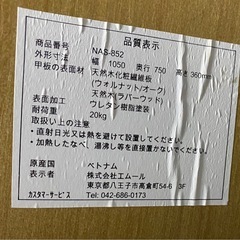 品質表示
商品番号 NAS-852
外形寸法 幅 1050 奥行 750 高さ 360mm
甲板の表面材 天然木化粧繊維板
(ウォルナット/オーク)
天然木(ラバーウッド)
表面加工 ウレタン樹脂塗装
耐荷重 20kg
取扱い上の注意
・直射日光又は熱を避けて設置して下さい。
・加熱したなべ、湯沸し等を直接置かないで下さい。
原産国 ベトナム
表示者 株式会社エムール
東京都八王子市高倉町54-6 3F
カスタマーサービス Tel: 042-686-0173